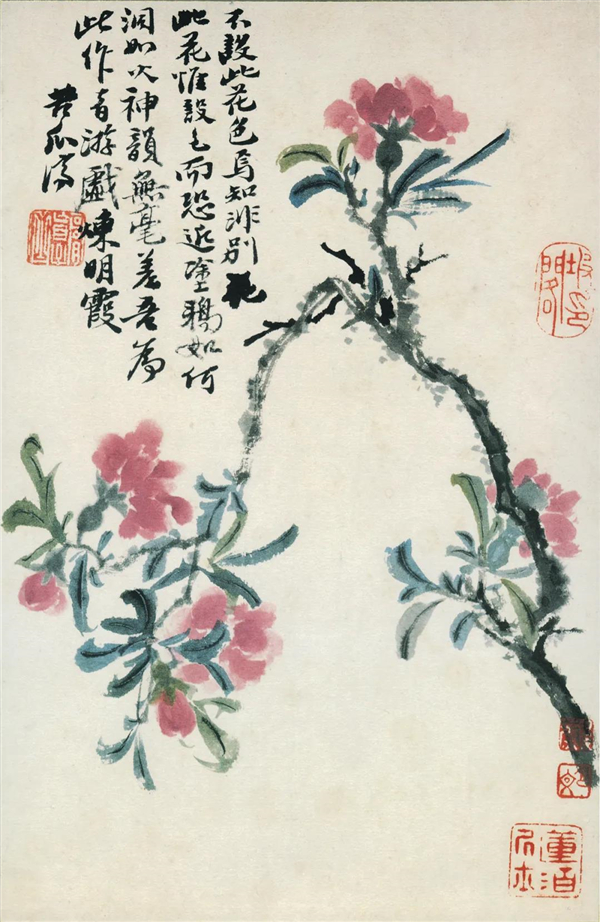 不設此花色焉知非别花
此花惟設色而恐近塗鴉如何
洞如火神韻無毫差吾為
此作者游戲煉明霞
苦瓜濟